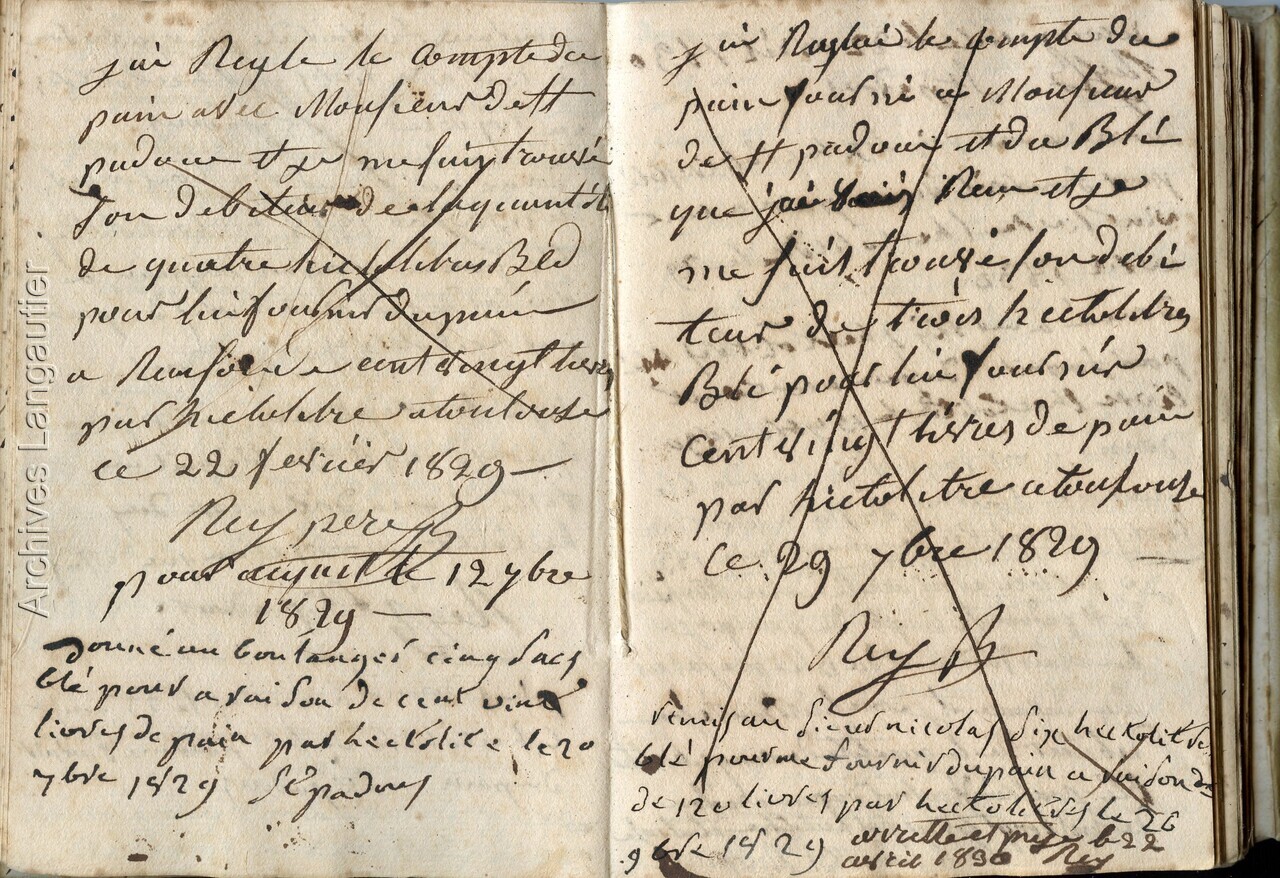 jai Regle le compte du
pain avec Monsieur De St
padoue et je me suis trouvé
son debiteur de la quantité
de quatre hictolitres Bled
pour lui fournir du pain
a Raison de cent vingt livres
par hictolitre a toulouse
ce 22 fevriér 1829
Rey pere
pour acquit le 12 7bre
1829
Donné au boulanger cinq sacs
blé pour a raison de cent vint
livres de pain par hectolitre le 20
7bre 1829 St padoue
jai Reglai le compte du
pain fourni a Monsieur
de St padoue et du Blé
que jai Remi et je
me suis trouvé son debi
teur de trois hictolitres
Blé pour lui fournir
Cent vingt livres de pain
par hictolitre a toulouse
Ce 29 7bre 1829
Rey
remis au sieur nicolas six hectolitres
blé pour me fournir du pain a raison de
de 120 livres par hectolitres le 26
9bre 1829 arretté et payé le 22
avril 1830 Rey
Archives Langautier